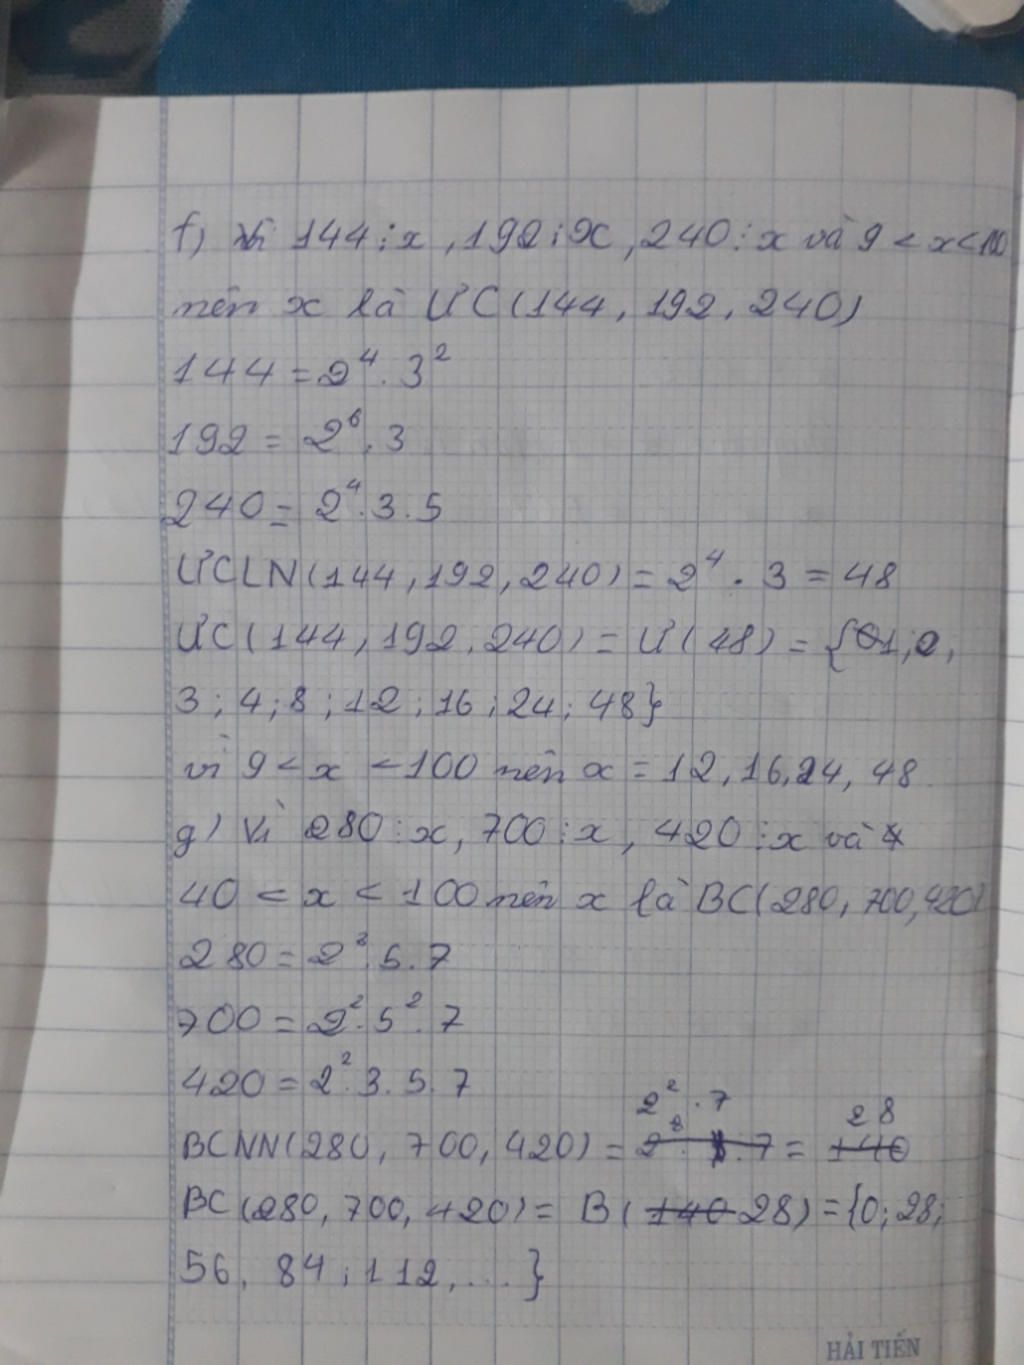 f) Vì 144⋮x, 192⋮x, 240⋮x và 9 < x < 100
nên x là ƯC(144, 192, 240)
144 = 2⁴. 3²
192 = 2⁶. 3
240 = 2⁴. 3. 5
ƯCLN(144, 192, 240) = 2⁴. 3 = 48
ƯC(144, 192, 240) = Ư(48) = {1; 2,
3; 4; 8; 12; 16; 24; 48}
vì 9 < x < 100 nên x = 12, 16, 24, 48
g) Vì 280⋮x, 700⋮x, 420⋮x và
40 < x < 100 nên x là BC(280, 700, 420)
280 = 2³. 5. 7
700 = 2². 5². 7
420 = 2². 3. 5. 7
BCNN(280, 700, 420) = 2². 7 = 28
BC(280, 700, 420) = B(28) = {0; 28;
56, 84; 112, ...}
HẢI TIẾN